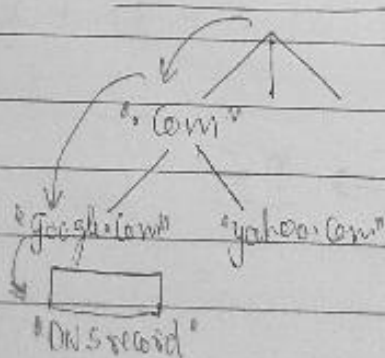 ". Com"
"google.com" "yahoo.com"
"DNS record"